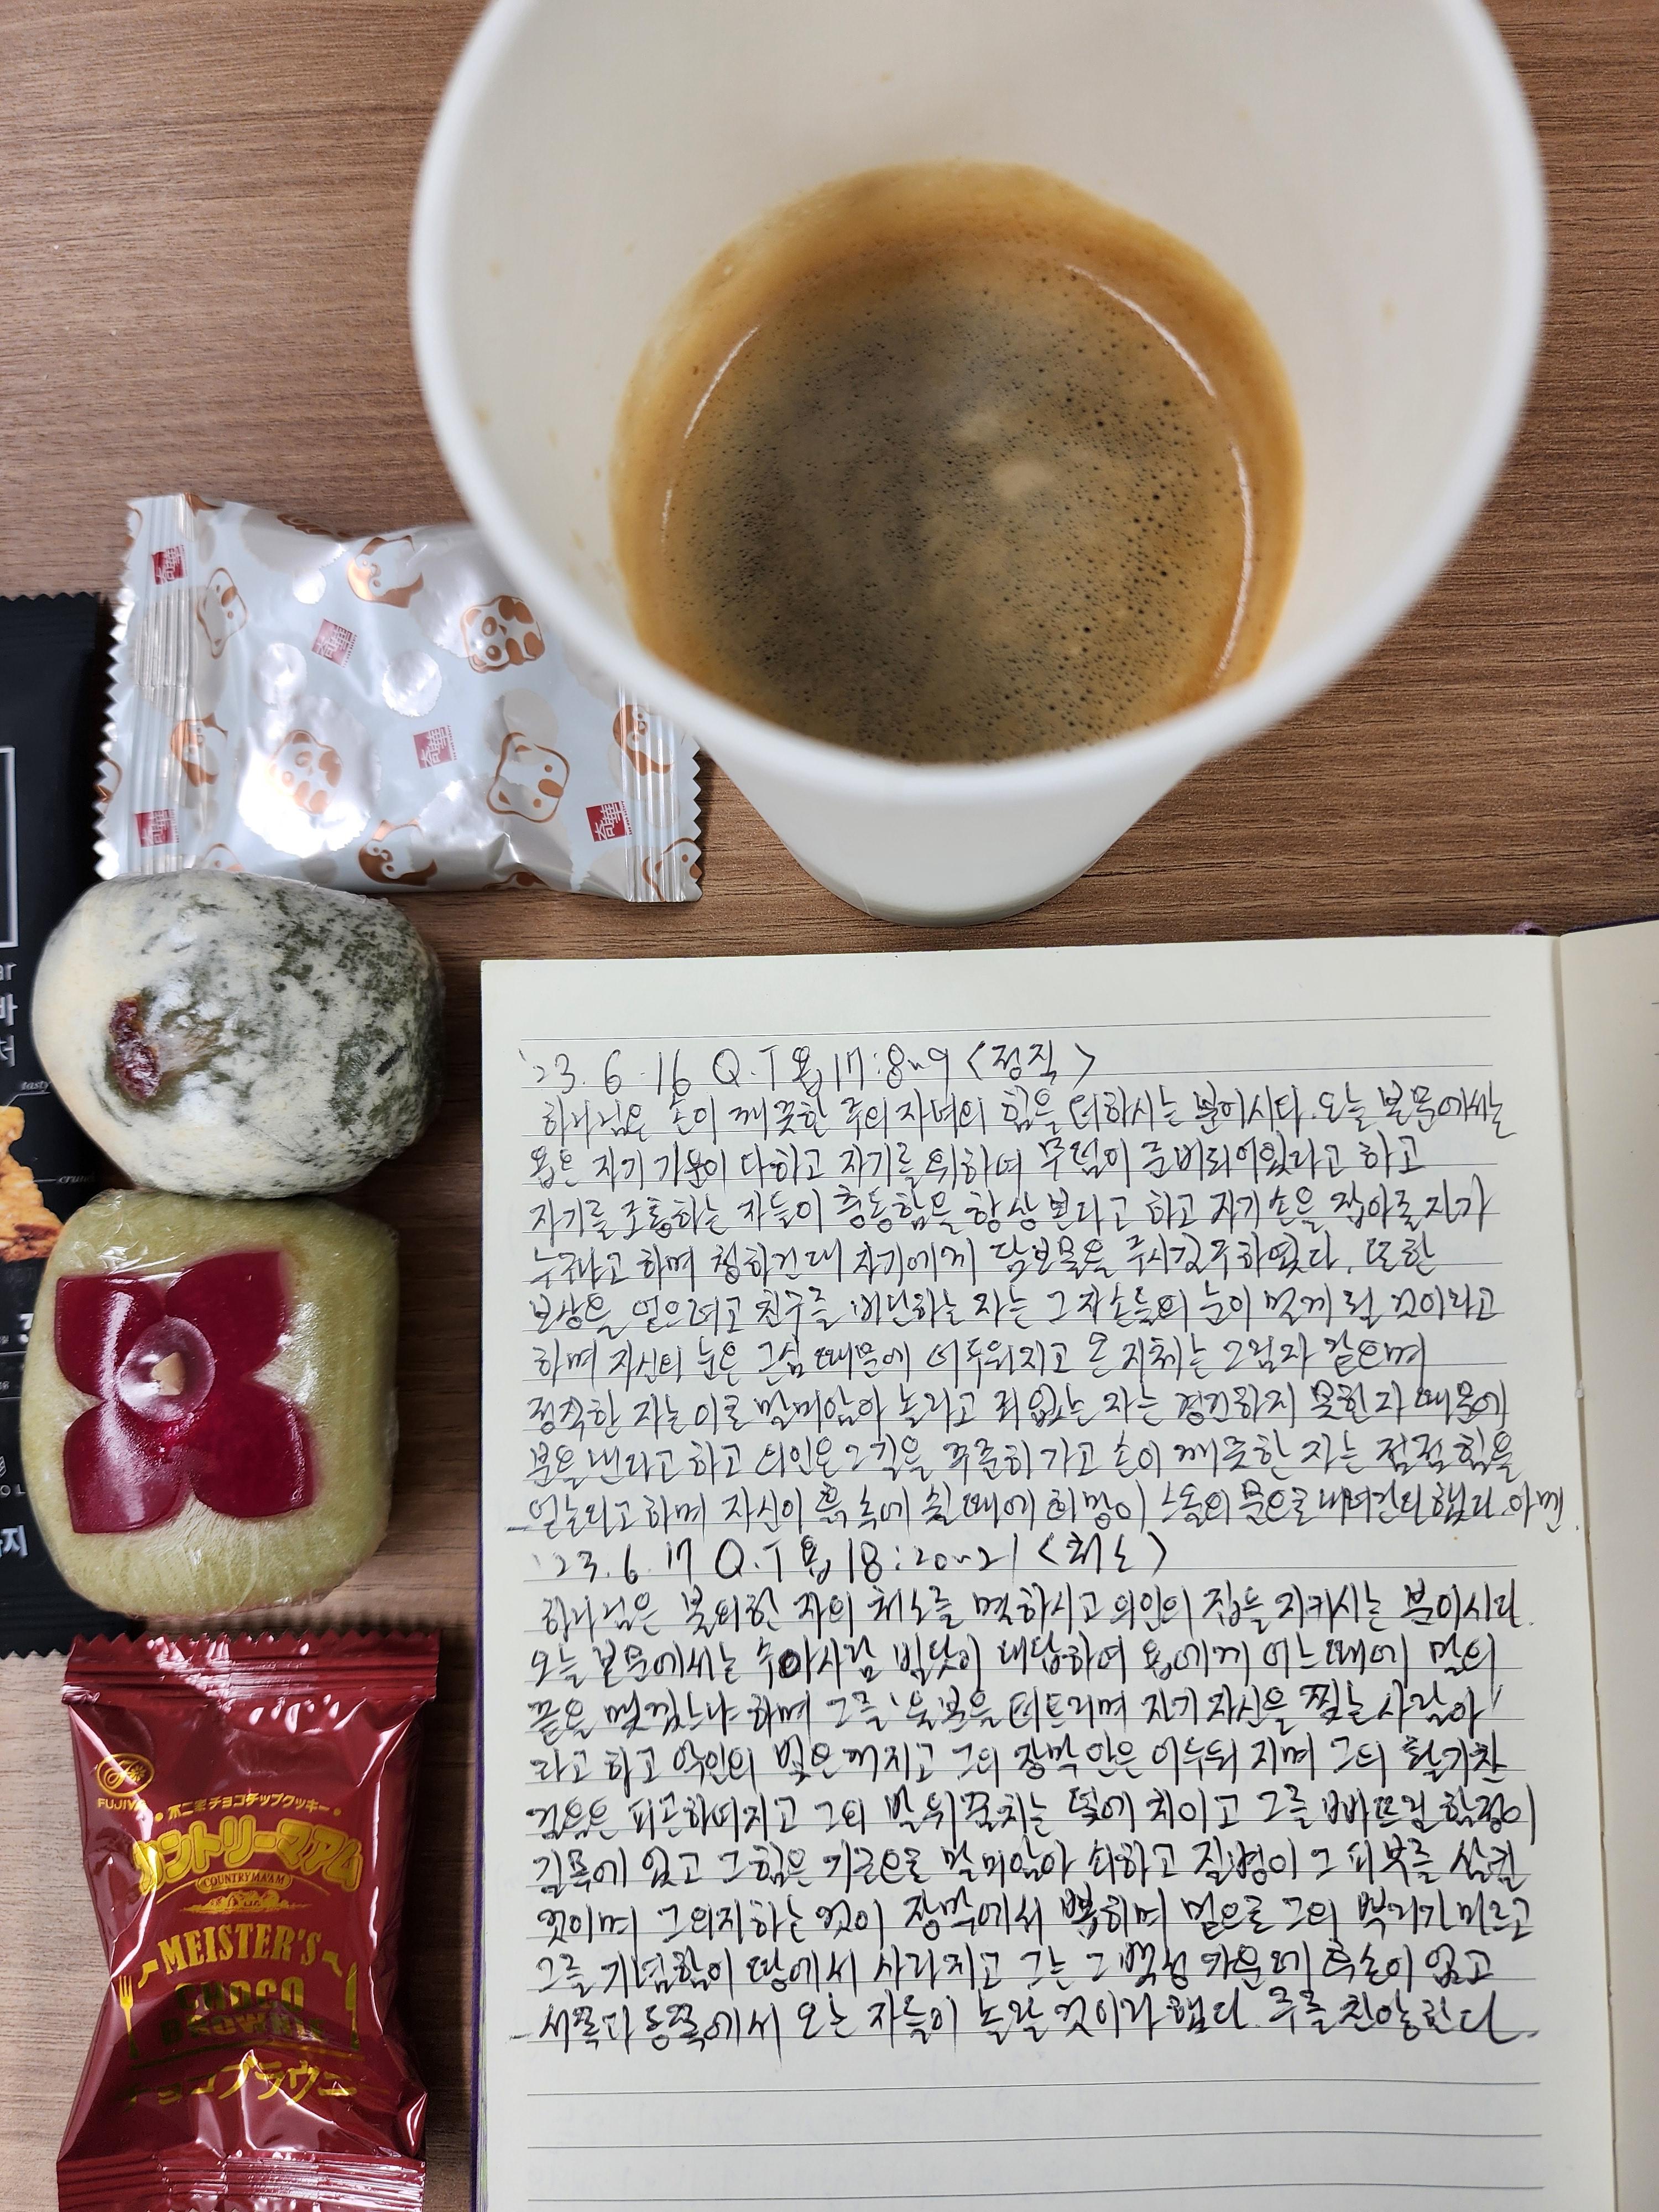 奇華
奇華
奇華
奇華
奇華
tasty
FUJIYA
不二家チョコチップクッキー
カントリーマアム
COUNTRY MA'AM
MEISTER'S
CHOCO
BROWNIE
チョコブラウニー
'23.6.16 Q.T 욥 17:8~9 <정직>
하나님은 손이 깨끗한 주의 자녀의 힘을 더하시는 분이시다. 오늘 본문에서는
욥은 자기 기운이 다하고 자기를 위하여 무덤이 준비되어있다고 하고
자기를 조롱하는 자들이 충동함을 항상 본다고 하고 자기 손을 잡아줄 자가
누구냐고 하며 청하건대 자기에게 담보물을 주시길 구하였다. 또한
보상을 얻으려고 친구를 비난하는 자는 그 자손들의 눈이 멀게 될 것이라고
하며 자신의 눈은 근심 때문에 어두워지고 온 지체는 그림자 같으며
정직한 자는 이로 말미암아 놀라고 죄 없는 자는 경건하지 못한 자 때문에
분을 낸다고 하고 의인은 그 길을 꾸준히 가고 손이 깨끗한 자는 점점 힘을
얻는다고 하며 자신이 흙 속에 쉴 때에 희망이 스올의 문으로 내려간다 했다. 아멘.
'23.6.17 Q.T 욥 18:20~21 <처소>
하나님은 불의한 자의 처소를 멸하시고 의인의 집을 지키시는 분이시다.
오늘 본문에서는 수아사람 빌닷이 대답하여 욥에게 어느때에 말의
끝을 맺겠느냐 하며 그를 '울분을 터트리며 자기 자신을 찢는 사람아'
라고 하고 악인의 빛은 꺼지고 그의 장막 안은 어두워 지며 그의 활기찬
걸음은 피곤하여지고 그의 발뒤꿈치는 덫에 치이고 그를 빠뜨릴 함정이
길목에 있고 그 힘은 기근으로 말미암아 쇠하고 질병이 그 피부를 삼킬
것이며 그 의지하는 것이 장막에서 뽑히며 밑으로 그의 뿌리가 마르고
그를 기념함이 땅에서 사라지고 그는 그 백성 가운데 후손이 없고
서쪽과 동쪽에서 오는 자들이 놀랄 것이라 했다. 주를 찬양한다.